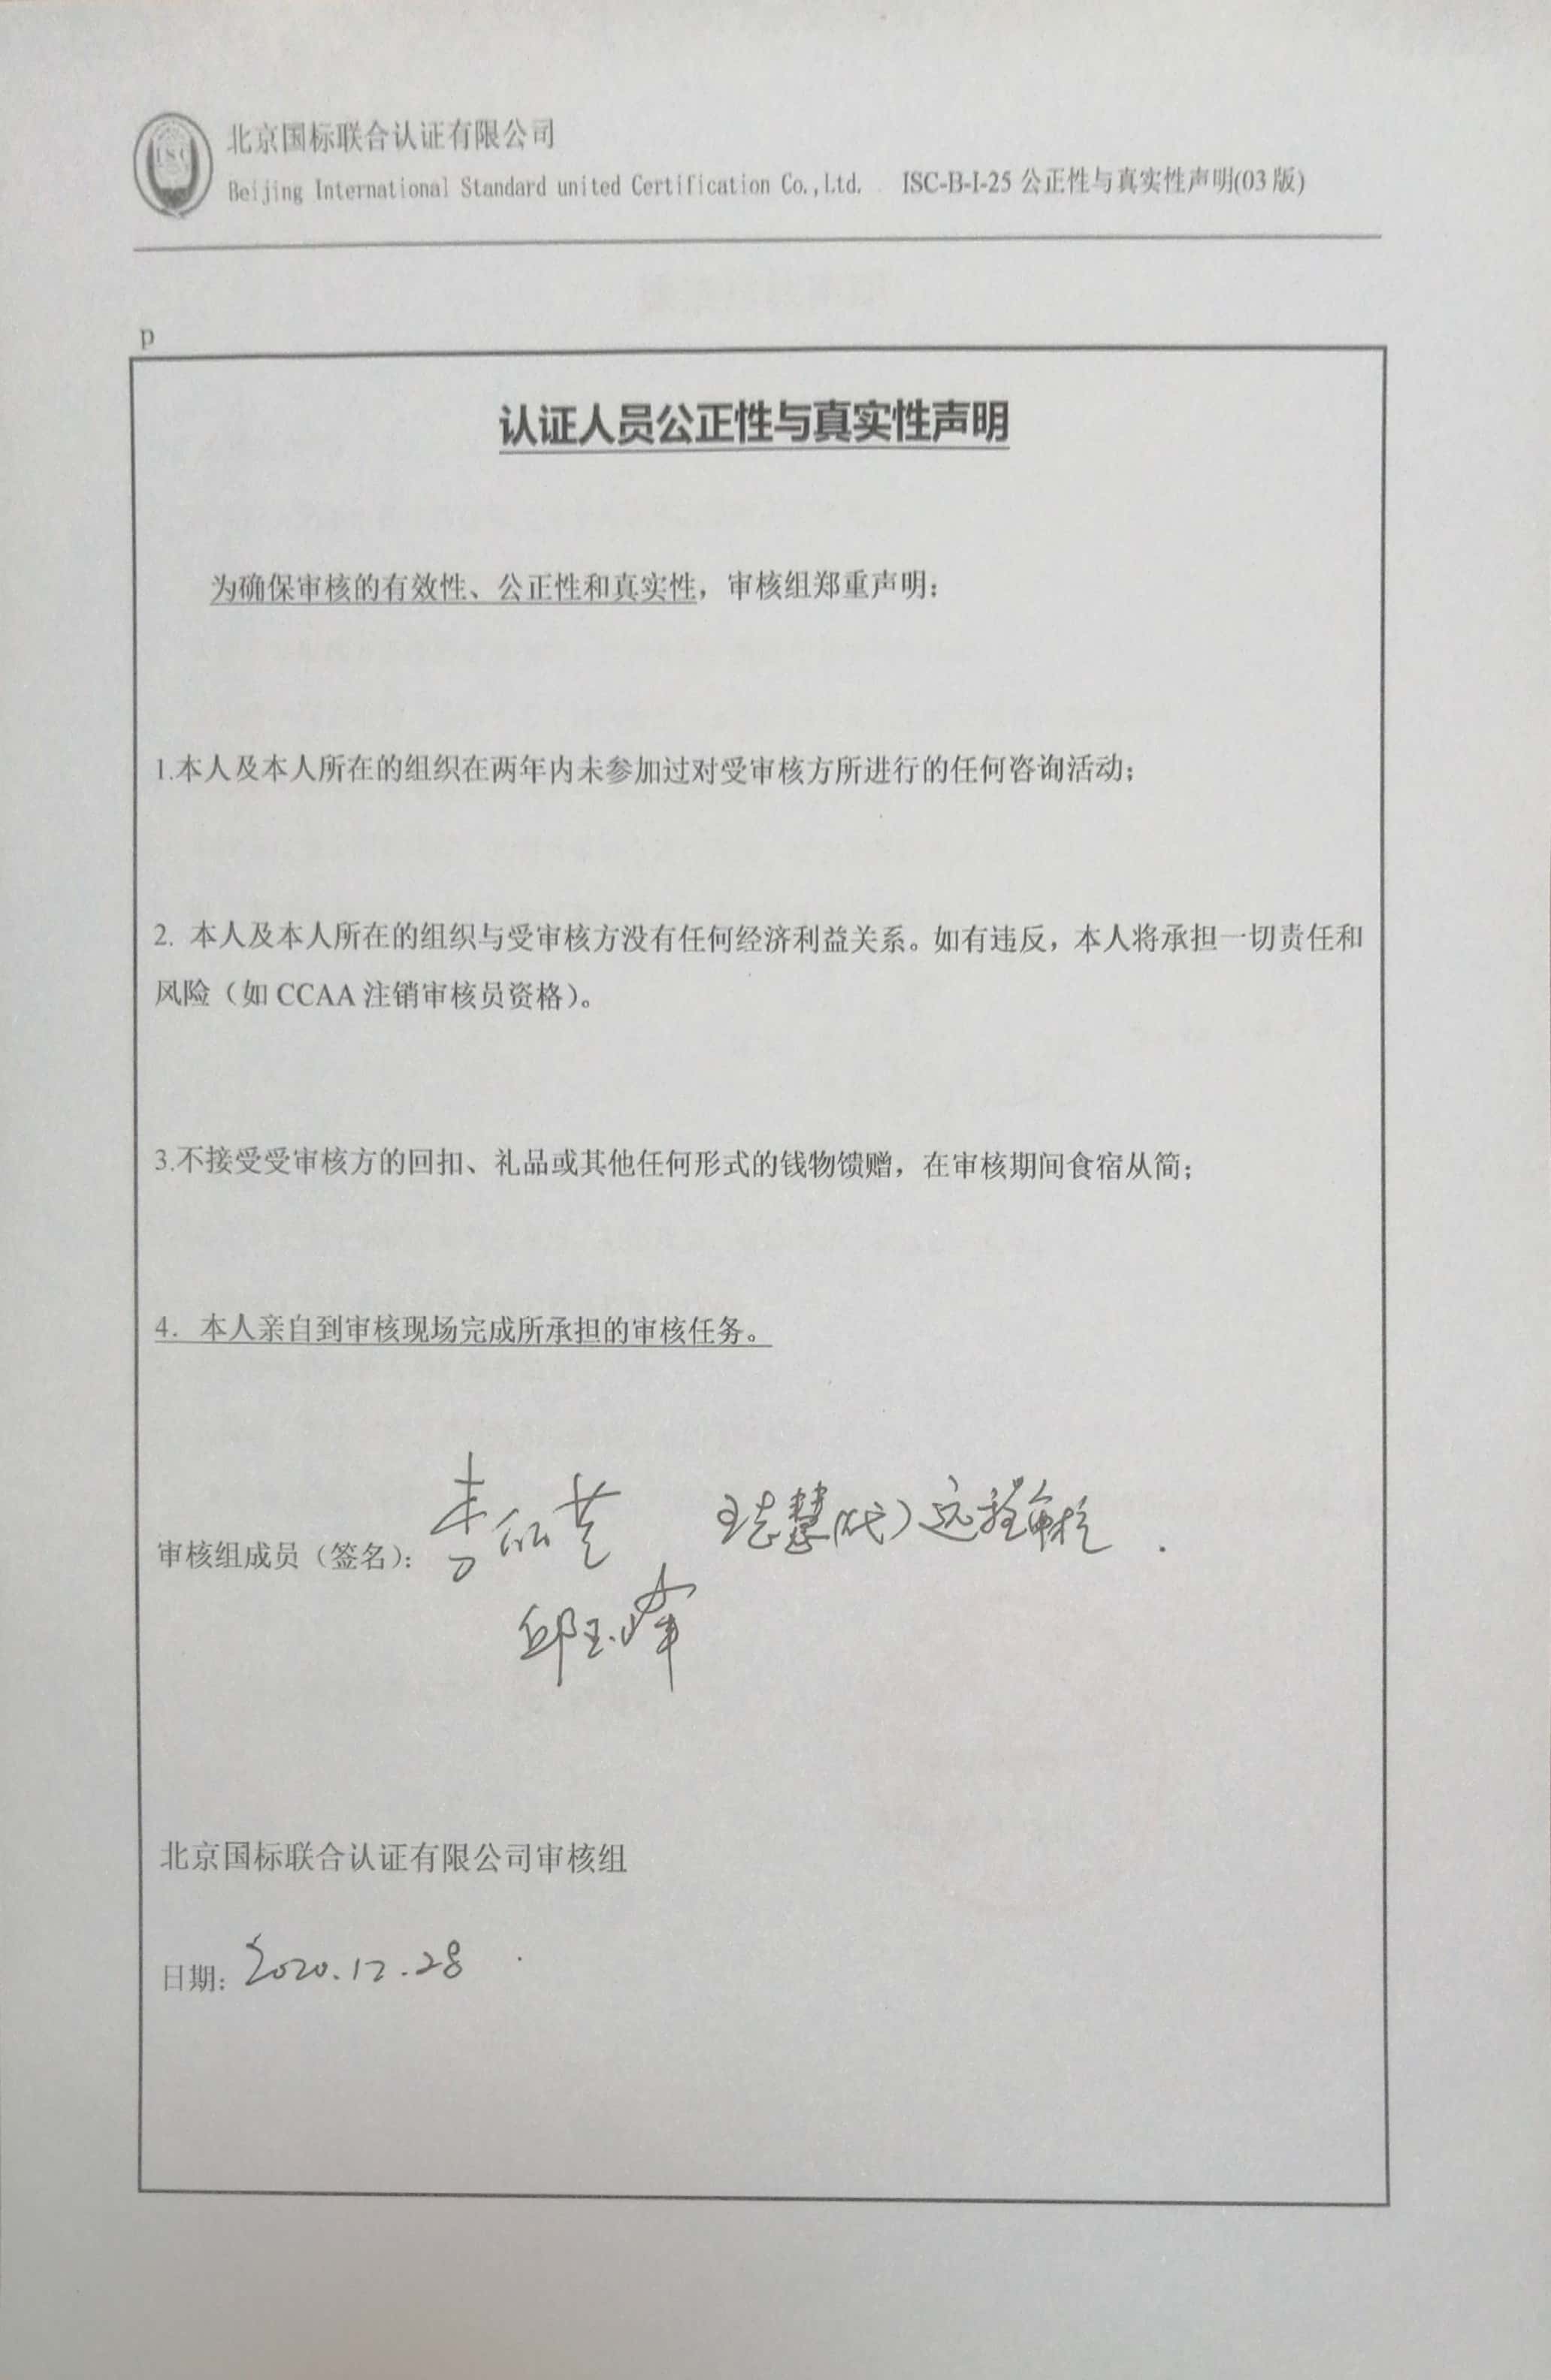 ISC
北京国标联合认证有限公司
Beijing International Standard united Certification Co.,Ltd. ISC-B-I-25 公正性与真实性声明(03 版)
p
认证人员公正性与真实性声明
为确保审核的有效性、公正性和真实性，审核组郑重声明：
1.本人及本人所在的组织在两年内未参加过对受审核方所进行的任何咨询活动；
2. 本人及本人所在的组织与受审核方没有任何经济利益关系。如有违反，本人将承担一切责任和
风险（如 CCAA 注销审核员资格）。
3.不接受受审核方的回扣、礼品或其他任何形式的钱物馈赠，在审核期间食宿从简；
4. 本人亲自到审核现场完成所承担的审核任务。
审核组成员（签名）： 李 王志慧(代) 远程审核
邱玉峰
北京国标联合认证有限公司审核组
日期：2020.12.28